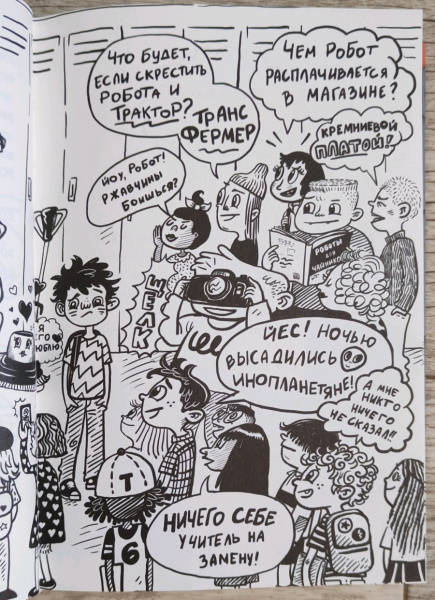 ЧТО БУДЕТ,
ЕСЛИ СКРЕСТИТЬ
РОБОТА И
ТРАКТОР?
ТРАНС
ФЕРМЕР
ЧЕМ РОБОТ
РАСПЛАЧИВАЕТСЯ
В МАГАЗИНЕ?
КРЕМНИЕВОЙ
ПЛАТОЙ!
ЙОУ, РОБОТ!
РЖАВЧИНЫ
БОИШЬСЯ?
РОБОТЫ
ДЛЯ
ЧАЙНИКОВ
ЩЕЛК
Я
ЕГО
ЛЮБЛЮ
ЙЕС! НОЧЬЮ
ВЫСАДИЛИСЬ
ИНОПЛАНЕТЯНЕ!
А МНЕ
НИКТО
НИЧЕГО
НЕ СКАЗАЛ!!
T
6
НИЧЕГО СЕБЕ
УЧИТЕЛЬ НА
ЗАМЕНУ!